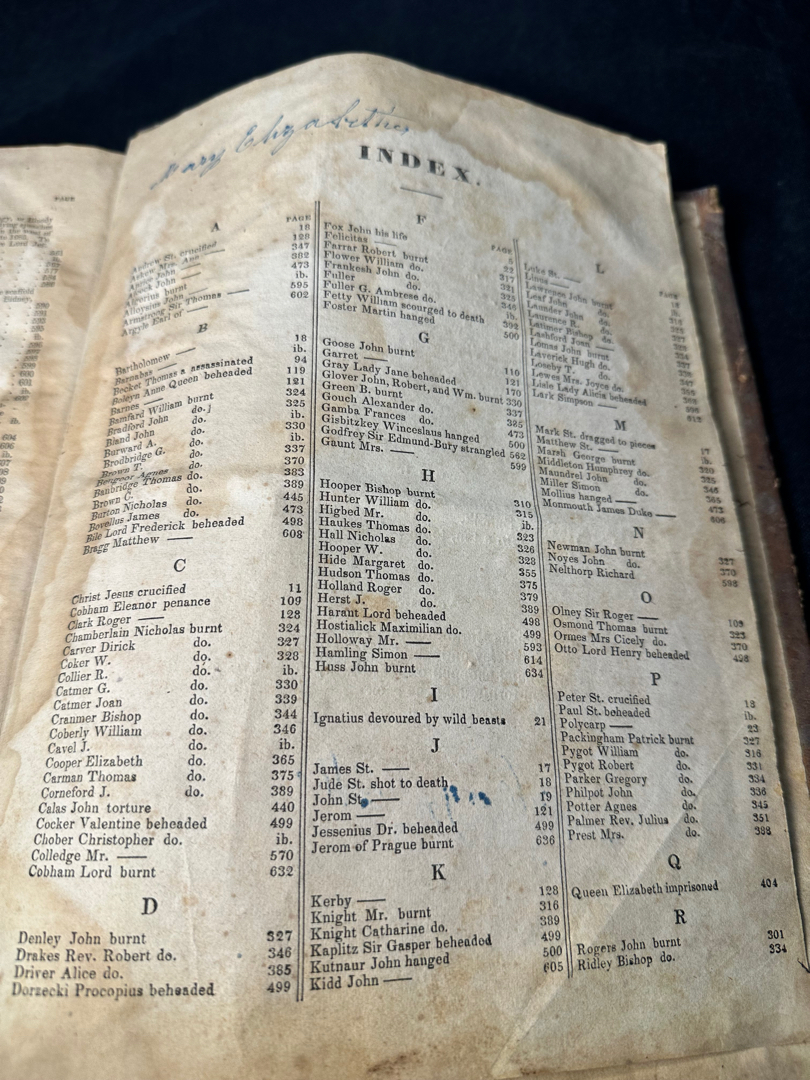 Mary Elizabeth
INDEX.
A
PAGE
Andrew St. crucified 18
Askew Mrs. Ann 128
347
John 382
Algerius burnt 473
Alloysius John ib.
Armstrong Sir Thomas — 595
Argyle Earl of — 602
B
Bartholomew — 18
Barnabas — ib.
Becket Thomas a assassinated 94
Boleyn Anne Queen beheaded 119
Barnes — 121
Bamford William burnt 324
Bradford John do. 325
Bland John do. ib.
Burward A. do. 330
Brodbridge G. do. ib.
Brown T. do. 337
Bengeor Agnes do. 370
Banbridge Thomas do. 383
Brown C. do. 389
Burton Nicholas do. 445
Bovellus James do. 473
Bile Lord Frederick beheaded 498
Bragg Matthew — 608
C
Christ Jesus crucified 11
Cobham Eleanor penance 109
Clark Roger — 128
Chamberlain Nicholas burnt 324
Carver Dirick do. 327
Coker W. do. 328
Collier R. do. ib.
Catmer G. do. 330
Catmer Joan do. 339
Cranmer Bishop do. 344
Coberly William do. 346
Cavel J. do. ib.
Cooper Elizabeth do. 365
Carman Thomas do. 375
Corneford J. do. 389
Calas John torture 440
Cocker Valentine beheaded 499
Chober Christopher do. ib.
Colledge Mr. — 570
Cobham Lord burnt 632
D
Denley John burnt 327
Drakes Rev. Robert do. 346
Driver Alice do. 385
Dorzecki Procopius beheaded 499
F
PAGE
Fox John his life 5
Felicitas — 22
Farrar Robert burnt 317
Flower William do. 321
Frankesh John do. 325
Fuller do. 346
Fuller G. Ambrose do. ib.
Fetty William scourged to death 392
Foster Martin hanged 500
G
Goose John burnt 110
Garret — 121
Gray Lady Jane beheaded 170
Glover John, Robert, and Wm. burnt 330
Green B. burnt 337
Gouch Alexander do. 385
Gamba Frances do. 473
Gisbitzkey Winceslaus hanged 500
Godfrey Sir Edmund-Bury strangled 562
Gaunt Mrs. — 599
H
Hooper Bishop burnt 310
Hunter William do. 315
Higbed Mr. do. ib.
Haukes Thomas do. 323
Hall Nicholas do. 326
Hooper W. do. 328
Hide Margaret do. 355
Hudson Thomas do. 375
Holland Roger do. 379
Herst J. do. 389
Harant Lord beheaded 498
Hostialick Maximilian do. 499
Holloway Mr. — 593
Hamling Simon — 614
Huss John burnt 634
I
Ignatius devoured by wild beasts 21
J
James St. — 17
Jude St. shot to death 18
John St. — 19
Jerom — 121
Jessenius Dr. beheaded 499
Jerom of Prague burnt 636
K
Kerby — 128
Knight Mr. burnt 316
Knight Catharine do. 389
Kaplitz Sir Gasper beheaded 499
Kutnaur John hanged 500
Kidd John — 605
L
Luke St. —
Linus —
Lawrence John burnt
Leaf John do.
Launder John do.
Laurence R. do.
Latimer Bishop do.
Lashford Joan do.
Lomas John burnt
Laverick Hugh do.
Loseby T. do.
Lewes Mrs. Joyce do.
Lisle Lady Alicia beheaded
Lark Simpson —
M
Mark St. dragged to pieces 17
Matthew St. — ib.
Marsh George burnt 320
Middleton Humphrey do. 325
Maundrel John do. 346
Miller Simon do. 365
Mollius hanged — 473
Monmouth James Duke — 606
N
Newman John burnt 327
Noyes John do. 370
Nelthorp Richard 598
O
Olney Sir Roger — 109
Osmond Thomas burnt 323
Ormes Mrs Cicely do. 370
Otto Lord Henry beheaded 498
P
Peter St. crucified 18
Paul St. beheaded ib.
Polycarp — 23
Packingham Patrick burnt 327
Pygot William do. 316
Pygot Robert do. 331
Parker Gregory do. 334
Philpot John do. 336
Potter Agnes do. 345
Palmer Rev. Julius do. 351
Prest Mrs. do. 388
Q
Queen Elizabeth imprisoned 404
R
Rogers John burnt 301
Ridley Bishop do. 334